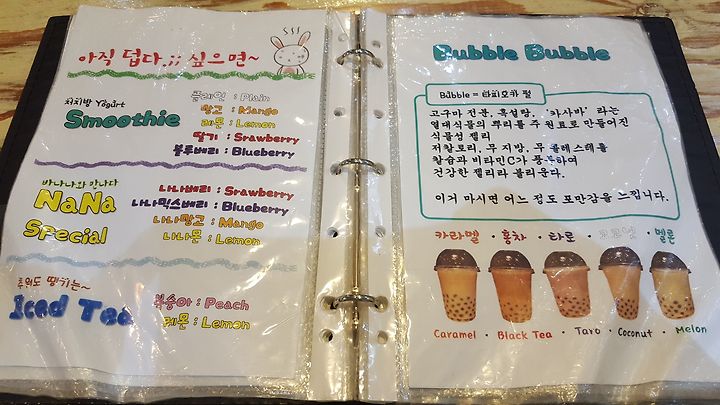 아직 덥다.;; 싶으면~
처치방 Yogurt
Smoothie
플레인 : Plain
망고 : Mango
레몬 : Lemon
딸기 : Srawberry
블루베리 : Blueberry
바나나와 만나다
NaNa
Special
나나베리 : Srawberry
나나믹스베리 : Blueberry
나나망고 : Mango
나나몬 : Lemon
추워도 땡기는~
Iced Tea
복숭아 : Peach
레몬 : Lemon
Bubble Bubble
Bubble = 타피오카 펄
고구마 전분, 흑설탕, '카사바' 라는
열대식물의 뿌리를 주 원료로 만들어진
식물성 젤리
저칼토리, 무 지방, 무 콜레스테롤
칼슘과 비타민C가 풍부하여
건강한 젤리라 불리운다.
이거 마시면 어느 정도 포만감을 느낍니다.
카라멜 · 홍차 · 타로 · 코코넛 · 멜론
Caramel · Black Tea · Taro · Coconut · Melon